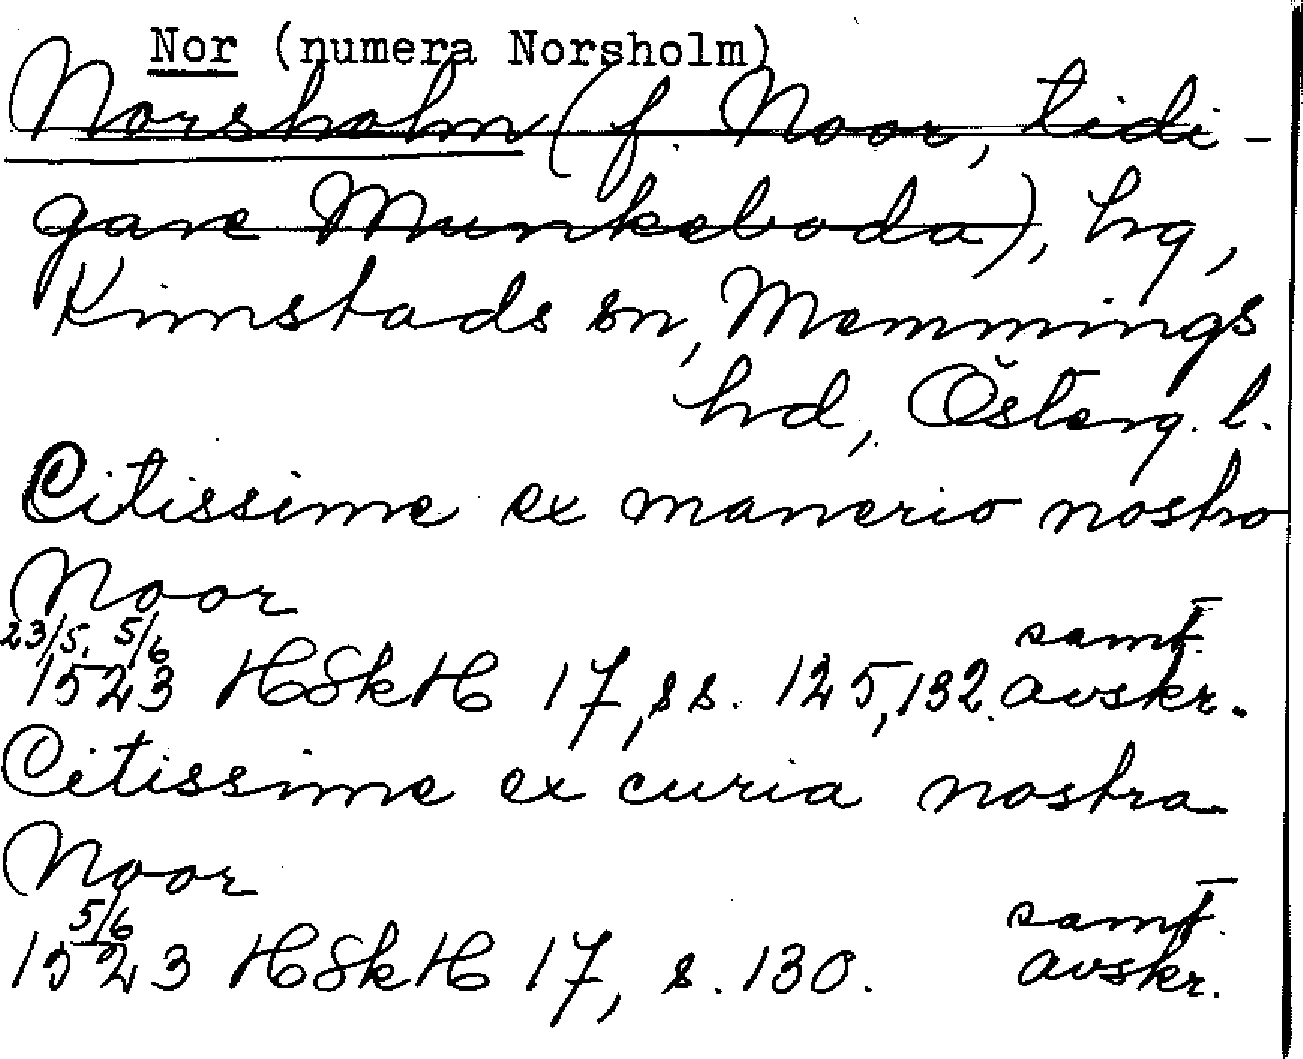 Nor (numera Norsholm)
Norsholm (f. Noor, tidi-
gare Munkeboda), hg,
Kimstads sn, Memmings
hd, Österg. l.
Citissime ex manerio nostro
Noor
23/5, 5/6 samt.
1523 HSkH 17, ss. 125, 132. avskr.
Citissime ex curia nostra
Noor
5/6 samt.
1523 HSkH 17, s. 130. avskr.